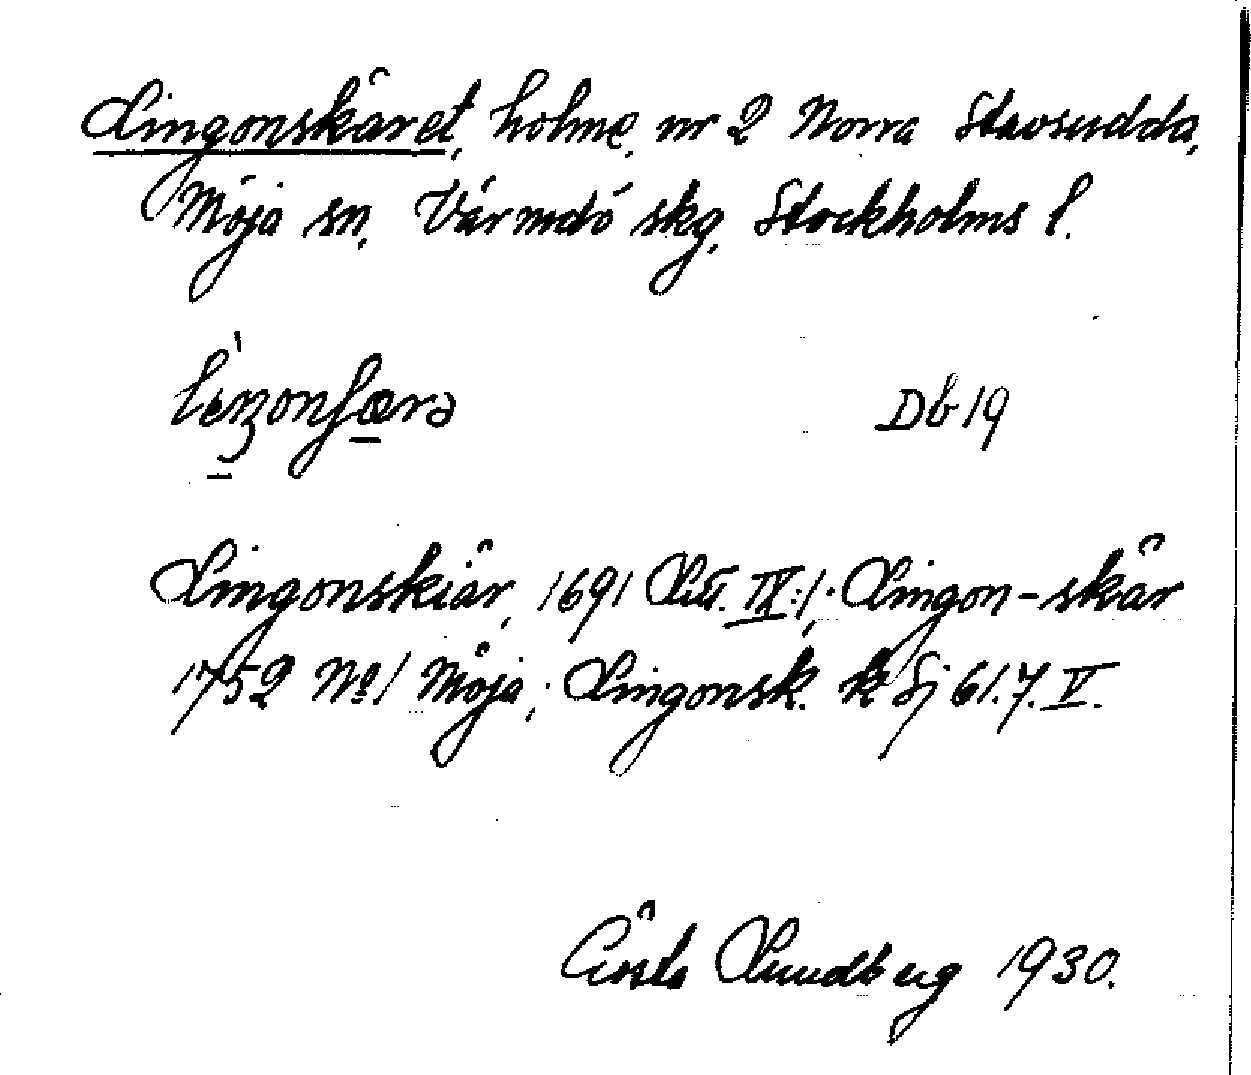 Lingonskäret, holme, nr 2 Norra Stavsudda,
Möja sn, Värmdö skg, Stockholms l.
Db 19
Lingonskiär, 1691 Litt. IX:1; Lingon-skär
1752 No 1 Möja; Lingonsk. k Sj 61.7.V.
Gösta Lundberg 1930.